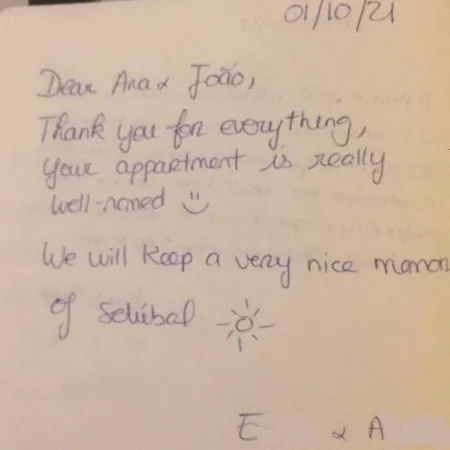 01/10/21
Dear Ana & João,
Thank you for everything,
your appartment is really
well-named
We will keep a very nice memor
of Setúbal
E & A